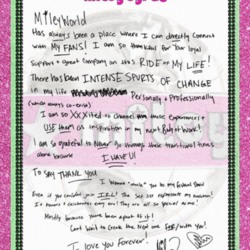 MileyWorld
Has always been a place where I can directly connect
with MY FANS! I am so thankful for your loyal
Support & great company on this RIDE of MY LIFE!
There has been INTENSE SPURTS OF CHANGE
in my life Personally & Professionally
(which always co-exist)
I am so XXXited to channel these experiences &
USE them as inspiration in my next Body of Work!
I am so grateful to Never go through these transitional times
alone because
I HAVE U!
To say THANK YOU
I wanna "invite" you to my
Even if you couldn't join IRL!
It honors & celebrates every one! They are all so special to me!
Mostly because you're been a part of it!
Can't wait to Create the Next One For/with You!
I love you Forever!